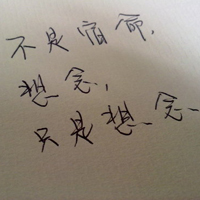 不是宿命,
想念,
只是想念